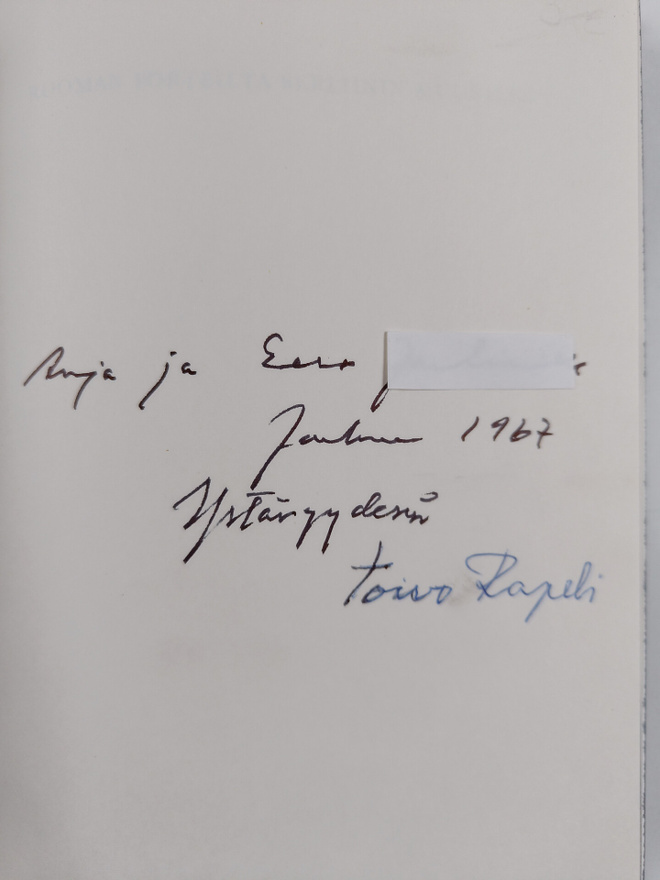 Anja ja Eero
Jouluna 1967
Ystävyydessä
Toivo Rapeli